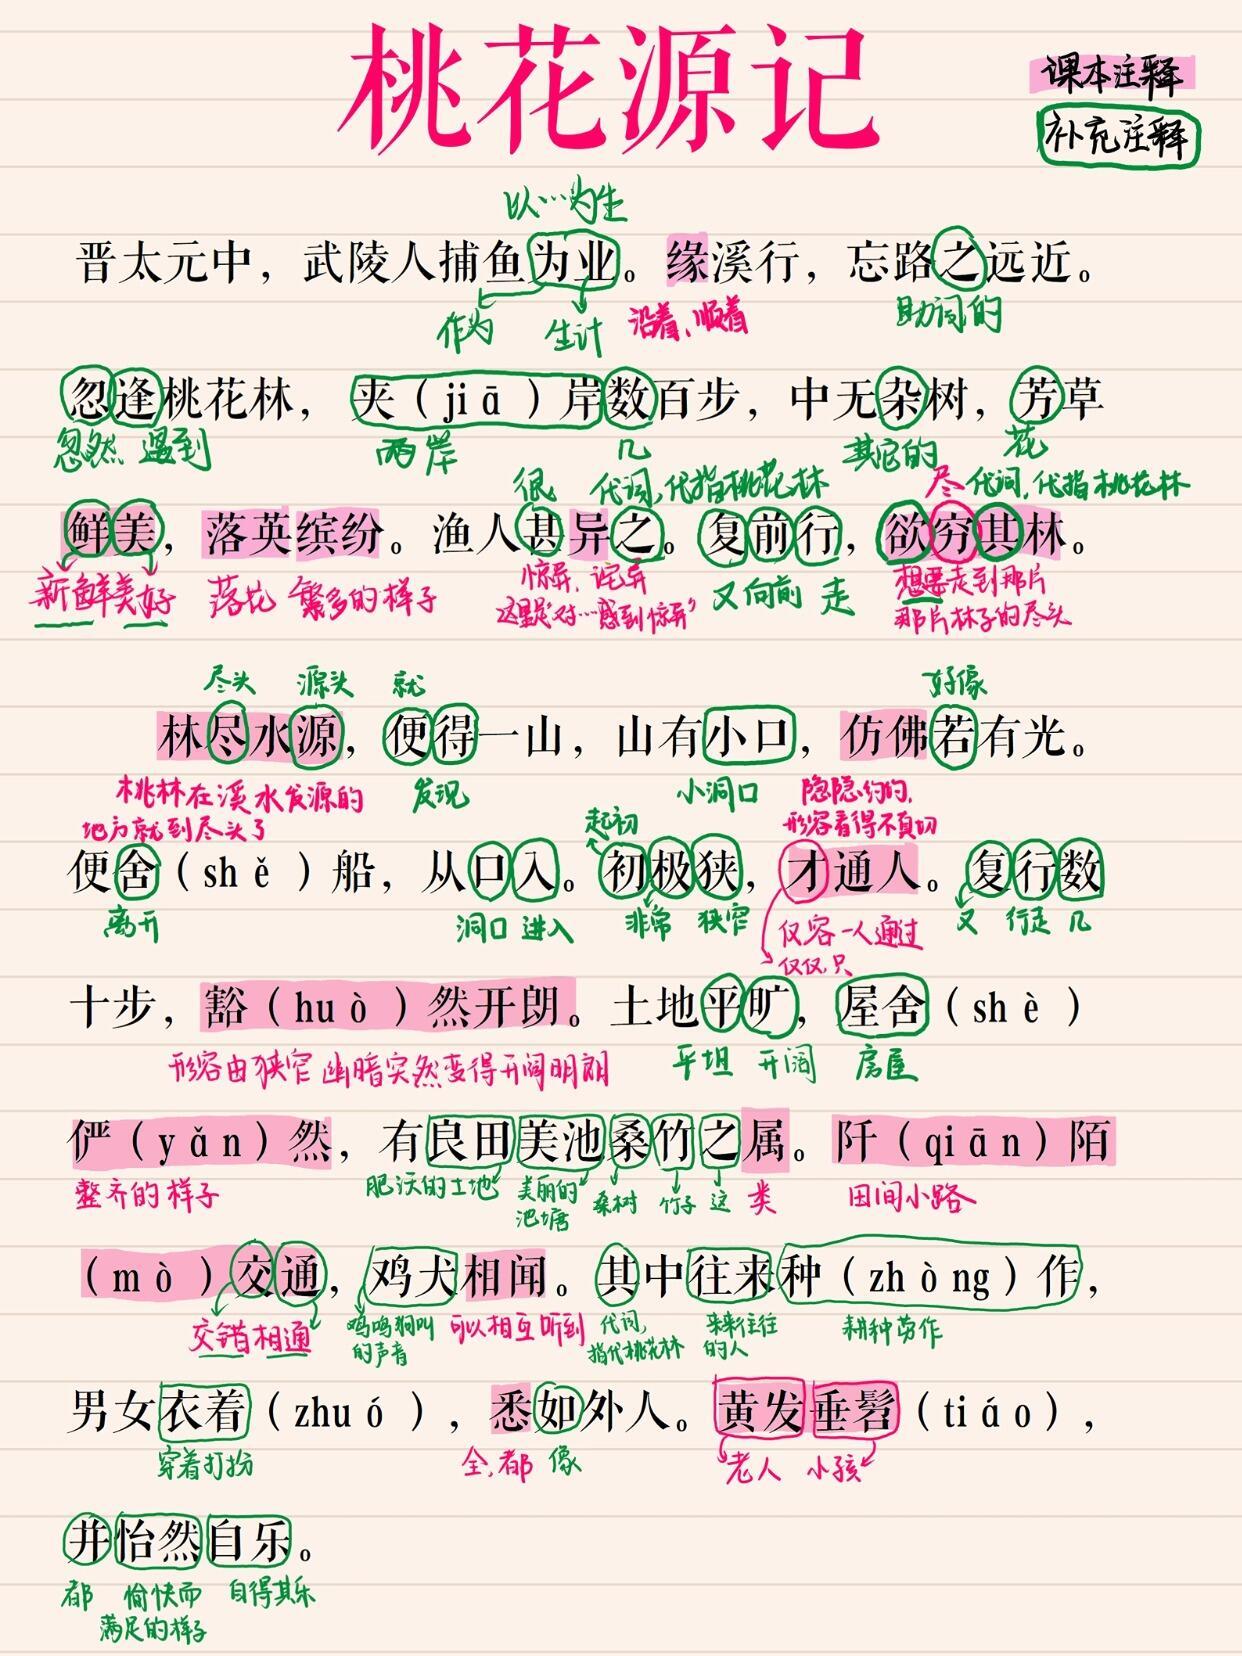 桃花源记
课本注释
补充注释
以…为生
晋太元中，武陵人捕鱼为业。缘溪行，忘路之远近。
作为 生计 沿着、顺着 助词的
忽逢桃花林，夹（jiā）岸数百步，中无杂树，芳草
忽然 遇到 两岸 几 其它的 花
很 代词，代指桃花林 尽 代词，代指桃花林
鲜美，落英缤纷。渔人甚异之。复前行，欲穷其林。
新鲜美好 落花 繁多的样子 惊异，诧异 又向前 走 想要走到那片
这里是“对…感到惊异” 那片林子的尽头
尽头 源头 就 好像
林尽水源，便得一山，山有小口，仿佛若有光。
桃林在溪水发源的 发现 小洞口 隐隐约约，
地方就到尽头了 起初 形容看得不真切
便舍（shě）船，从口入。初极狭，才通人。复行数
离开 洞口 进入 非常 狭窄 仅容一人通过 又 行走 几
仅仅，只
十步，豁（huò）然开朗。土地平旷，屋舍（shè）
形容由狭窄幽暗突然变得开阔明朗 平坦 开阔 房屋
俨（yǎn）然，有良田美池桑竹之属。阡（qiān）陌
整齐的样子 肥沃的土地 美丽的 桑树 竹子 这 类 田间小路
池塘
（mò）交通，鸡犬相闻。其中往来种（zhòng）作，
交错相通 鸡鸣狗叫 可以相互听到 代词， 来来往往 耕种劳作
的声音 指代桃花林 的人
男女衣着（zhuó），悉如外人。黄发垂髫（tiáo），
穿着打扮 全，都 像 老人 小孩
并怡然自乐。
都 愉快而 自得其乐
满足的样子